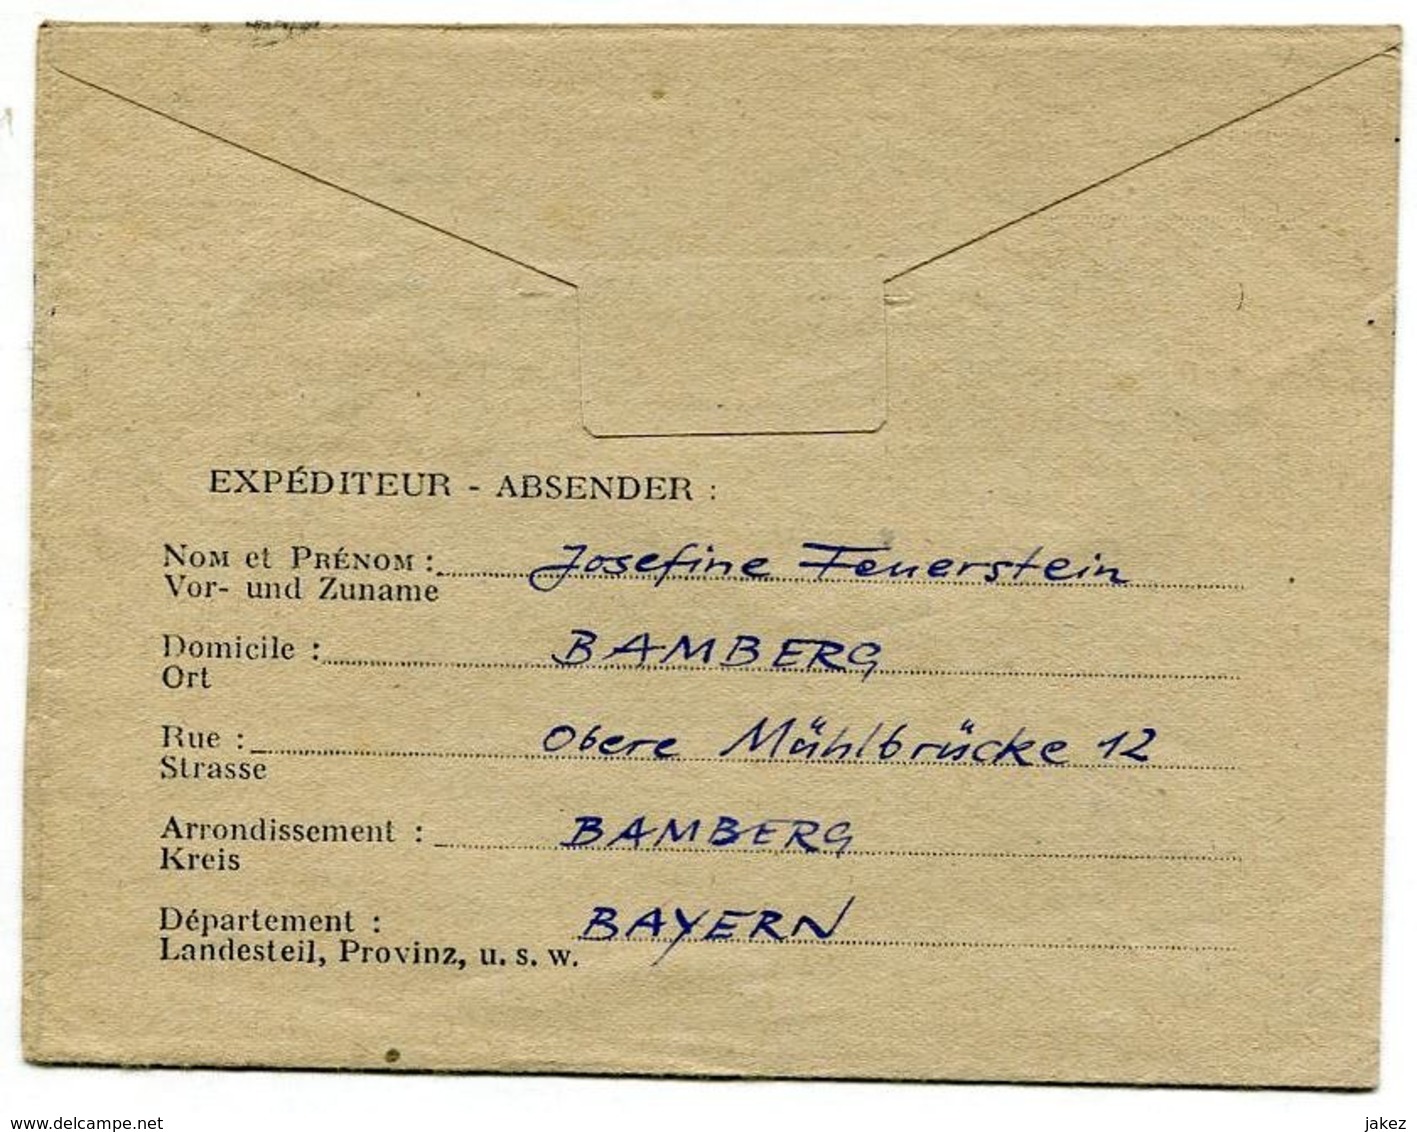 EXPÉDITEUR - ABSENDER :
NOM et PRÉNOM : Josefine Feuerstein
Vor- und Zuname
Domicile : BAMBERG
Ort
Rue : Obere Mühlbrücke 12
Strasse
Arrondissement : BAMBERG
Kreis
Département : BAYERN
Landesteil, Provinz, u. s. w.
www.delcampe.net
jakez